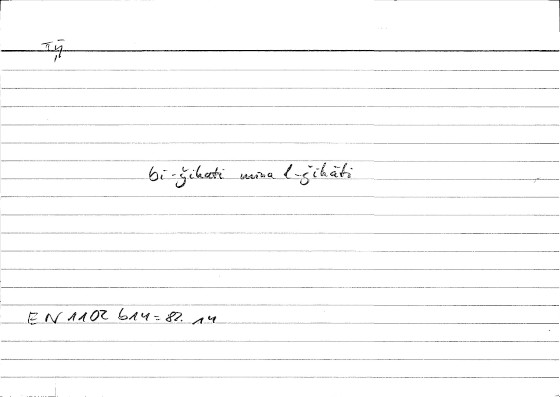 bi-ǧihati mina l-ǧihāti
EN 1102 b14 = 82. 14